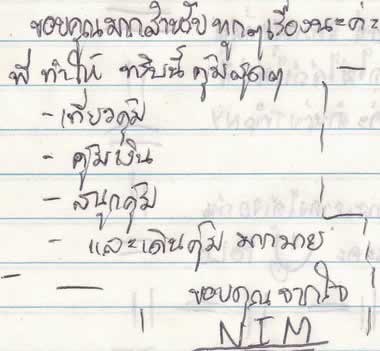 ขอบคุณมากสำหรับ ทุกๆเรื่องนะค่ะ
พี่ ทำให้ ทริบนี้ คุ้มสุดๆ
- เที่ยวคุ้ม
- คุ้มเงิน
- สนุกคุ้ม
- และเดินคุ้ม มากมาย
ขอบคุณ จากใจ
NIM